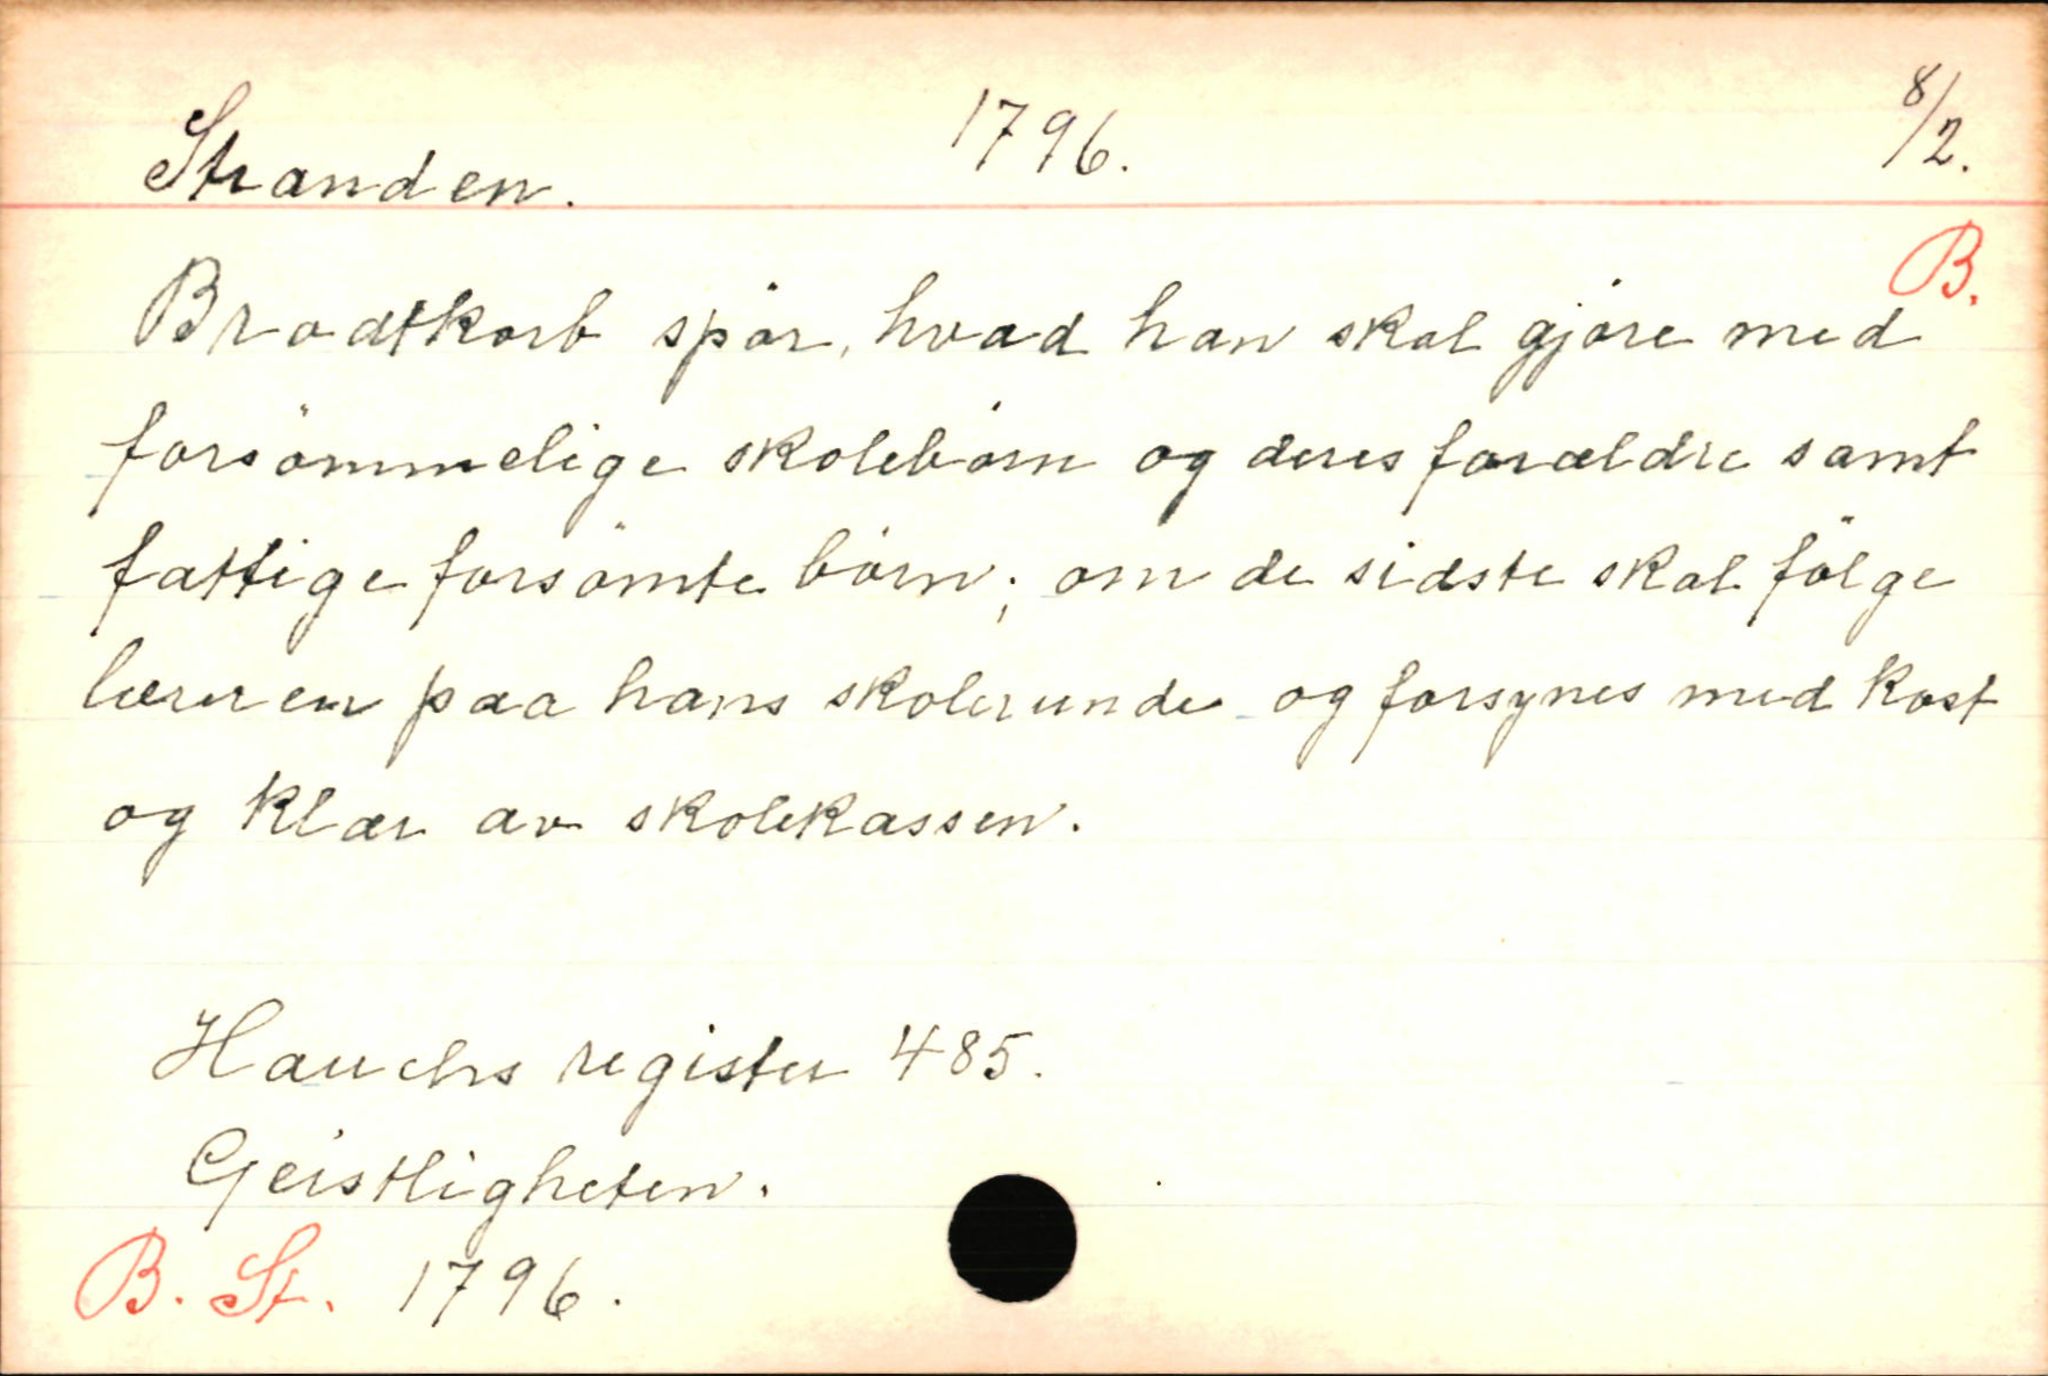 Stranden. 1796. 8/2.
B.
Brodtkorb spör, hvad han skal gjöre med
forsömmelige skolebörn og deres forældre samt
fattige forsömte börn; om de sidste skal fölge
læreren paa hans skolerunde og forsynes med kost
og klær av skolekassen.
Hauchs register 485.
Geistligheten.
B. St. 1796.